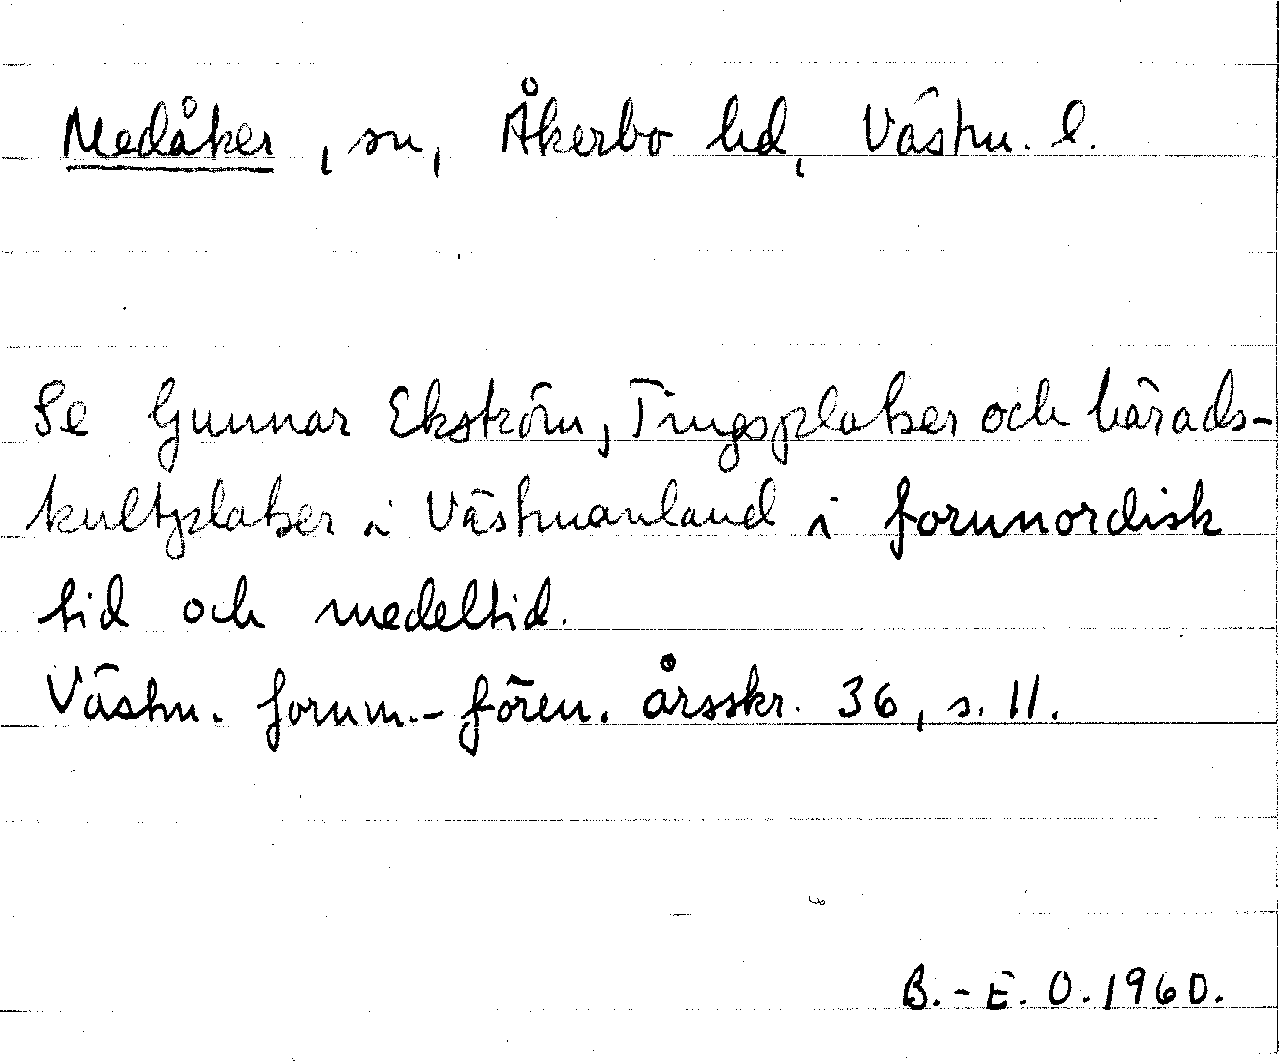 Medåker, sn, Åkerbo hd, Västm. l.
Se Gunnar Ekström, Tingsplatser och härads-
kultplatser i Västmanland i fornnordisk
tid och medeltid.
Västm. fornm.-fören. årsskr. 36, s. 11.
B.-E. O. 1960.